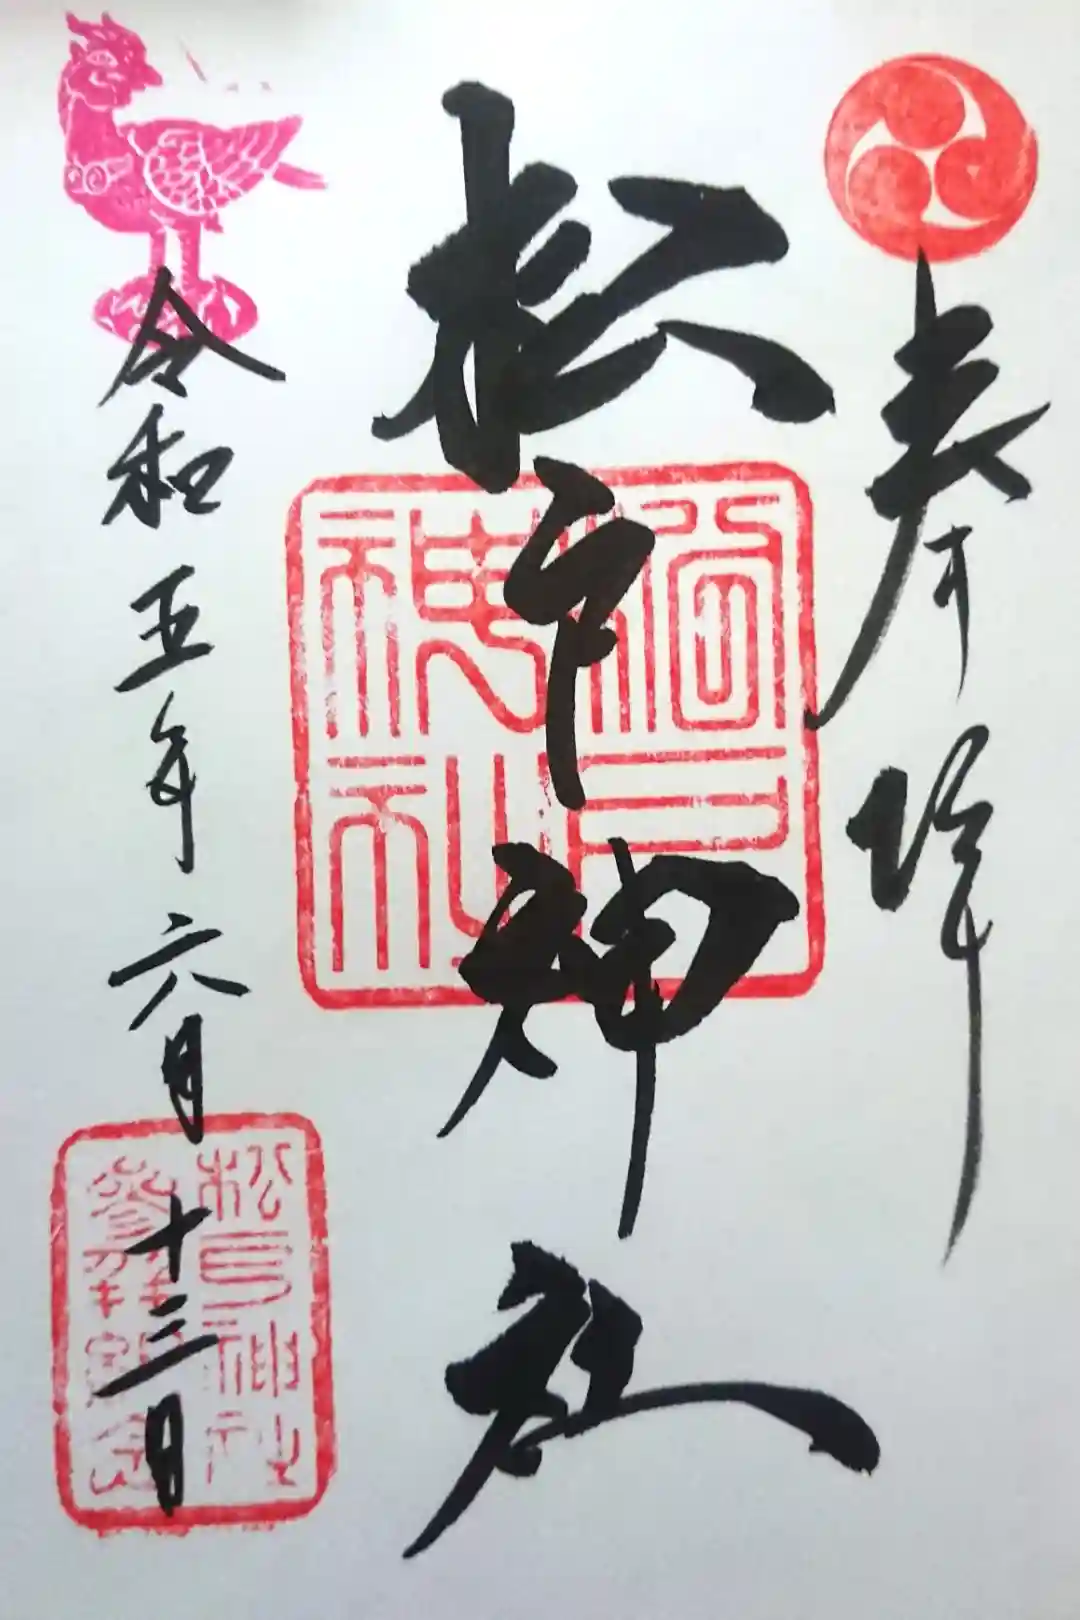 奉拝
松戸神社
松戸
神社
令和五年六月十三日
松戸神社
參拜記念